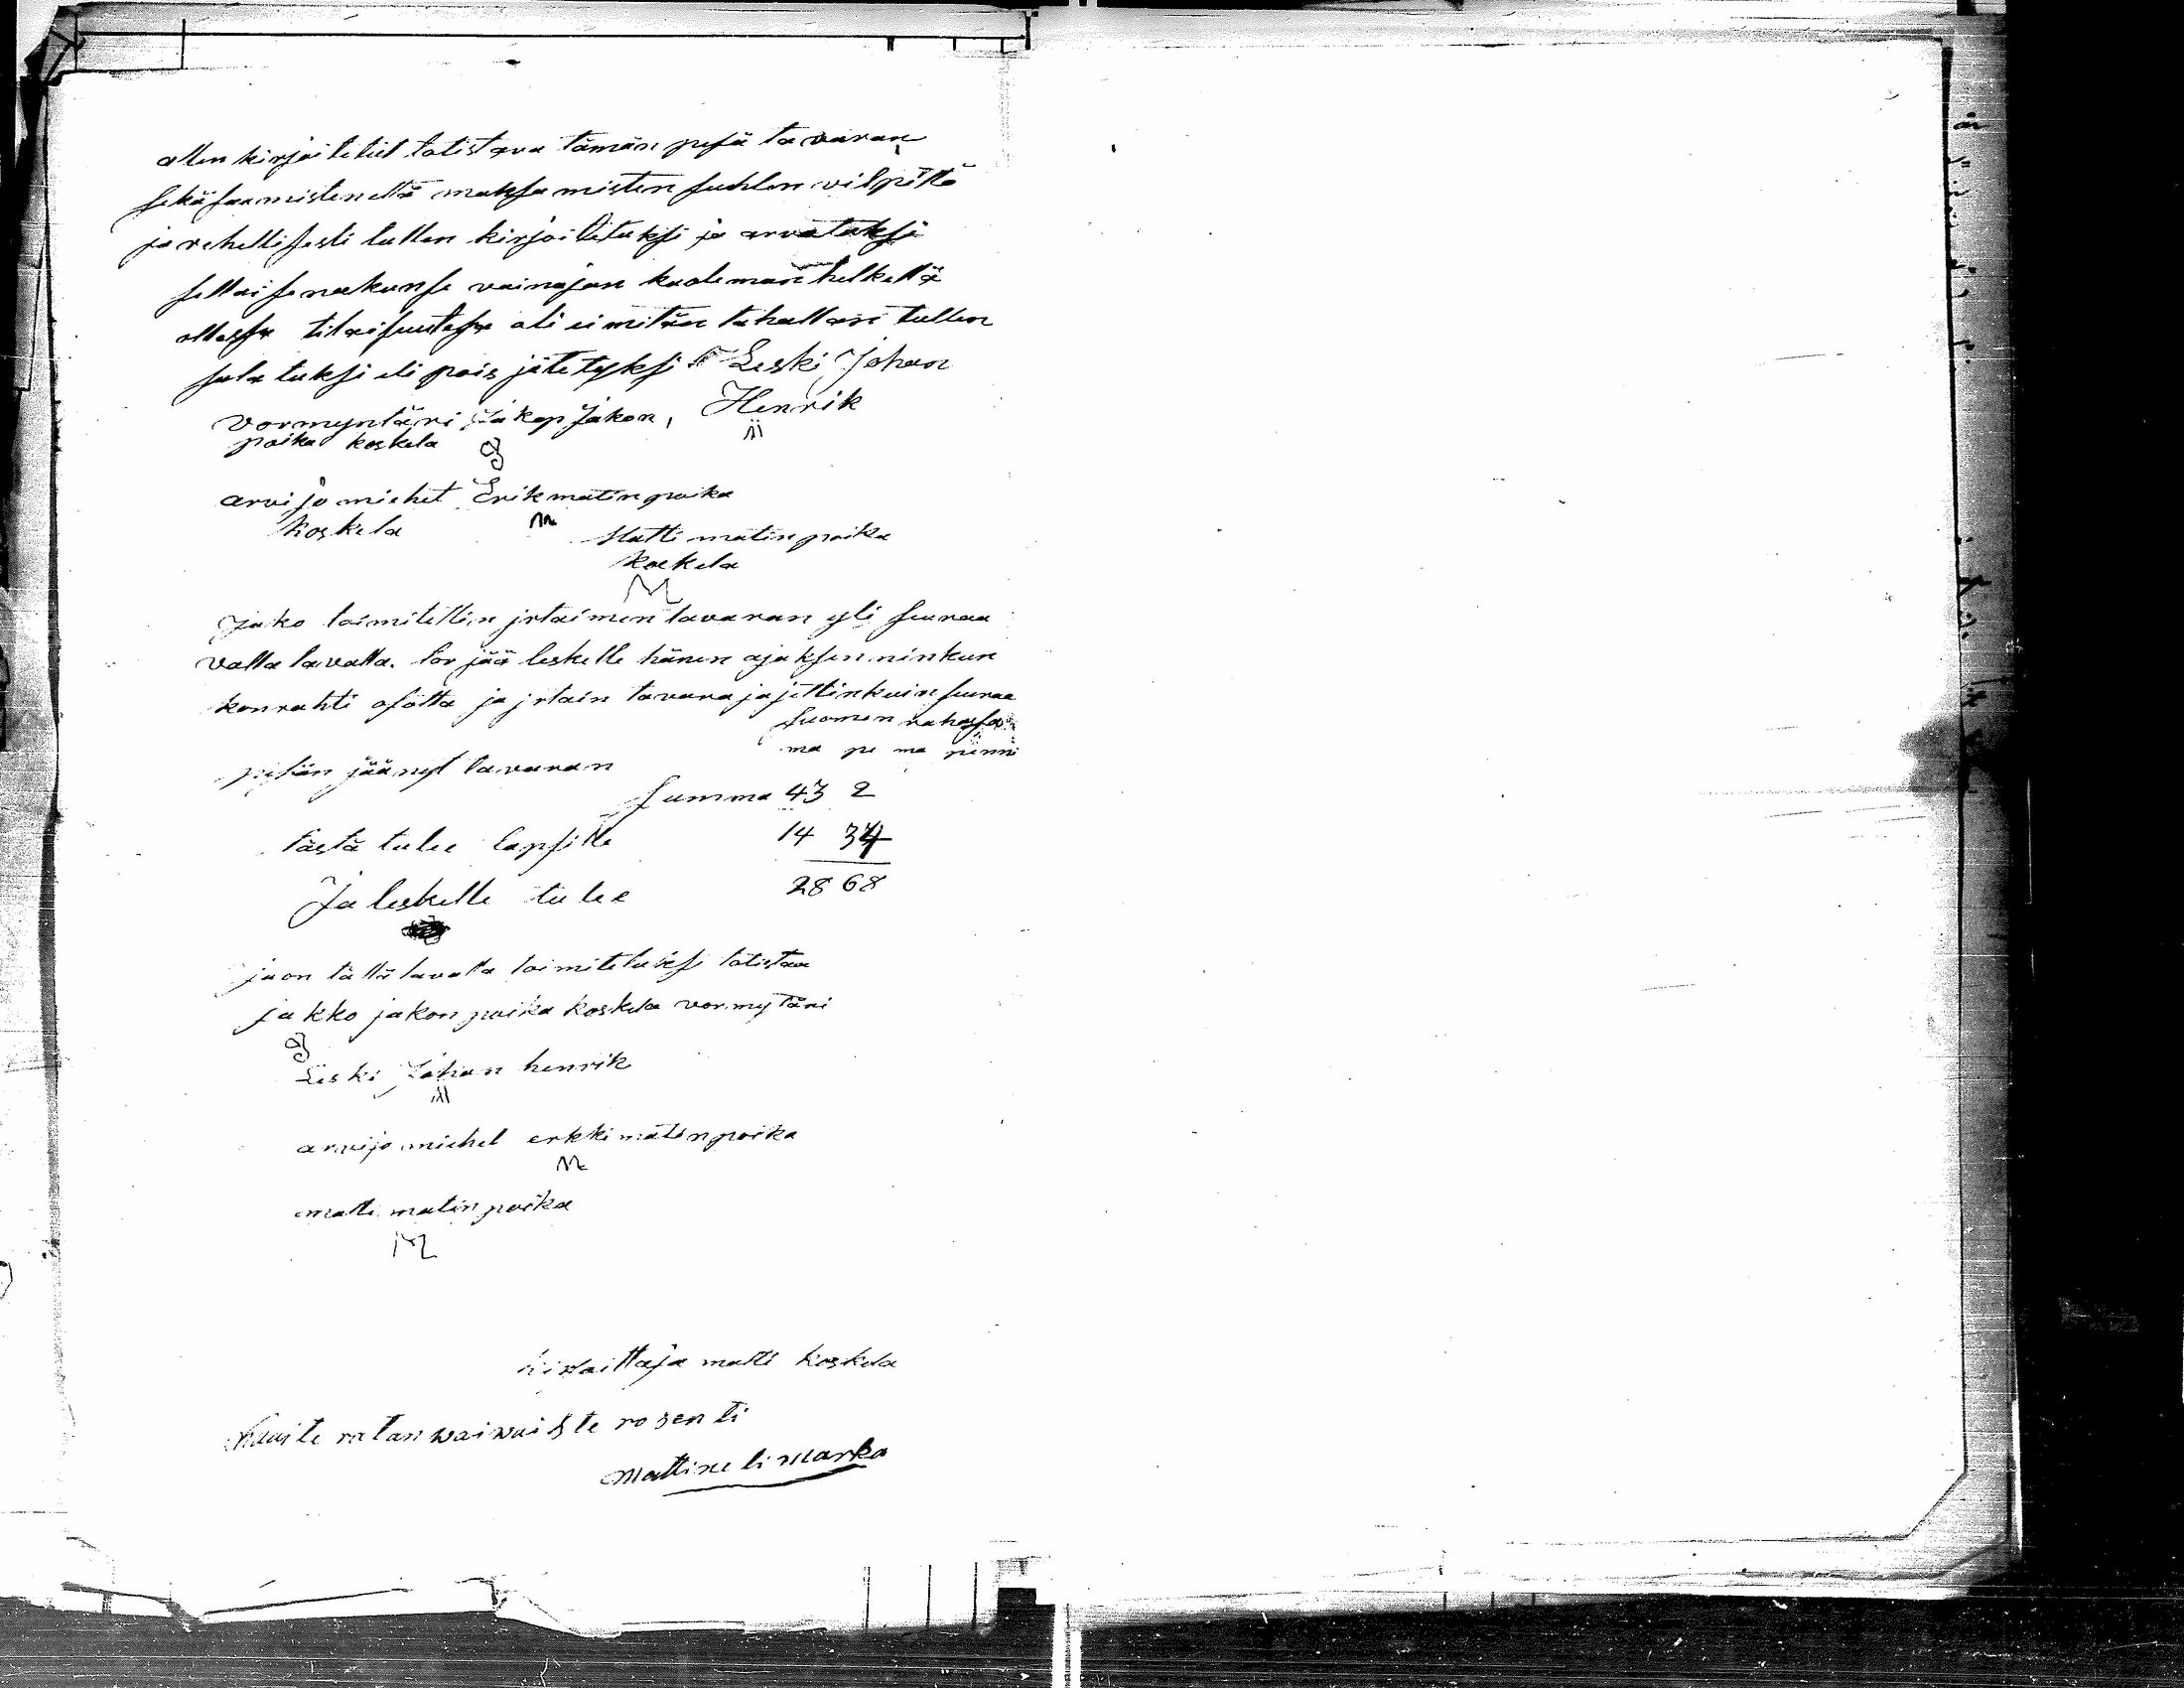 allen kirjoitetut totistava tämän pesä tavaran
sekä saamisten että maksamisten suhten vilpittä
ja rehellisesti tullen kirjoitetuksi ja arvatuksi
sellaisena kunse vainajan kuoleman hetkellä
ollessa tilaisuutessa oli ei mitän tahallans tullen
salatuksi eli pois jätetyksi Leski Johan
vormyntäri Jakop Jakon, Henrik
poika koskela
arvijo miehet Erik matinpoika
koskela
Matti matinpoika
koskela
Jako toimitettin jrtaimen tavaran yli seuraa
valla tavalla. tor jää leskelle hänen ajaksen ninkun
konrahti osotta ja jrtain tavara ja jettin kuin seuraa
suomen rahassa
ma pe ma penni
pesän jäänyt tavaran
summa 43 2
tästä tulee lapsille 14 34
Ja leskelle tulee 28 68
jaon tällä tavalla toimitetuksi totistaa
jakko jakon poika koskela vormytäri
Leski Johan henrik
arvijo miehet erkki matinpoika
matti matinpoika
kirjoittaja matti koskela
ratan waiwaiste rosenti
Matti